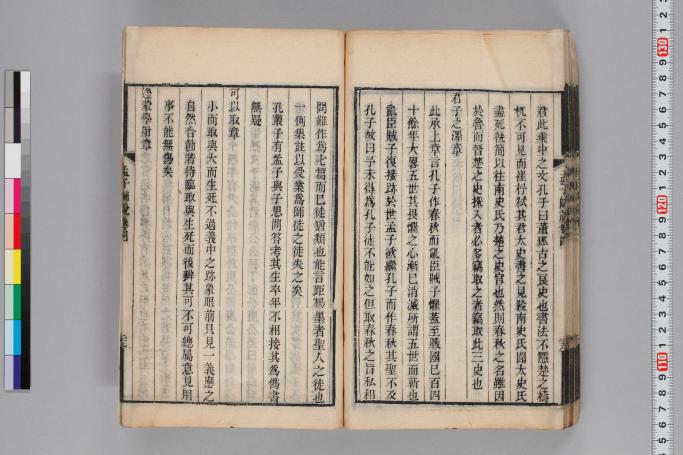 君此乘中之文孔子曰董狐古之良史也書法不隱楚之檮
杌不可見而崔杼弑其君太史書之見殺南史氏聞太史氏
盡死執簡以往南史氏乃楚之史官也然則春秋之名雖因
於魯而晉楚之史採入者必多竊取之者竊取此三史也
君子之澤章
此承上章言孔子作春秋而亂臣賊子懼蓋至戰國已百四
十餘年大畧五世其畏懼之心漸已消滅所謂五世而斬也
亂臣賊子復接跡於世孟子欲繼孔子而作春秋其聖不及
孔子故曰予未得為孔子徒不能如之但取春秋之旨私相
問難作為七篇而已徒猶類也能言距楊墨者聖人之徒也
一例集註以受業為師徒之徒失之矣
孔叢子有孟子與子思問答考其生卒年不相接其為偽書
無疑
可以取章
小而取與大而生死不過義中之跡象眼前只見一義應之
自然合節若待臨取與生死而後辨其可不可總屬意見用
事不能無傷矣
逄蒙學射章
孟子師說卷四
130
120
110